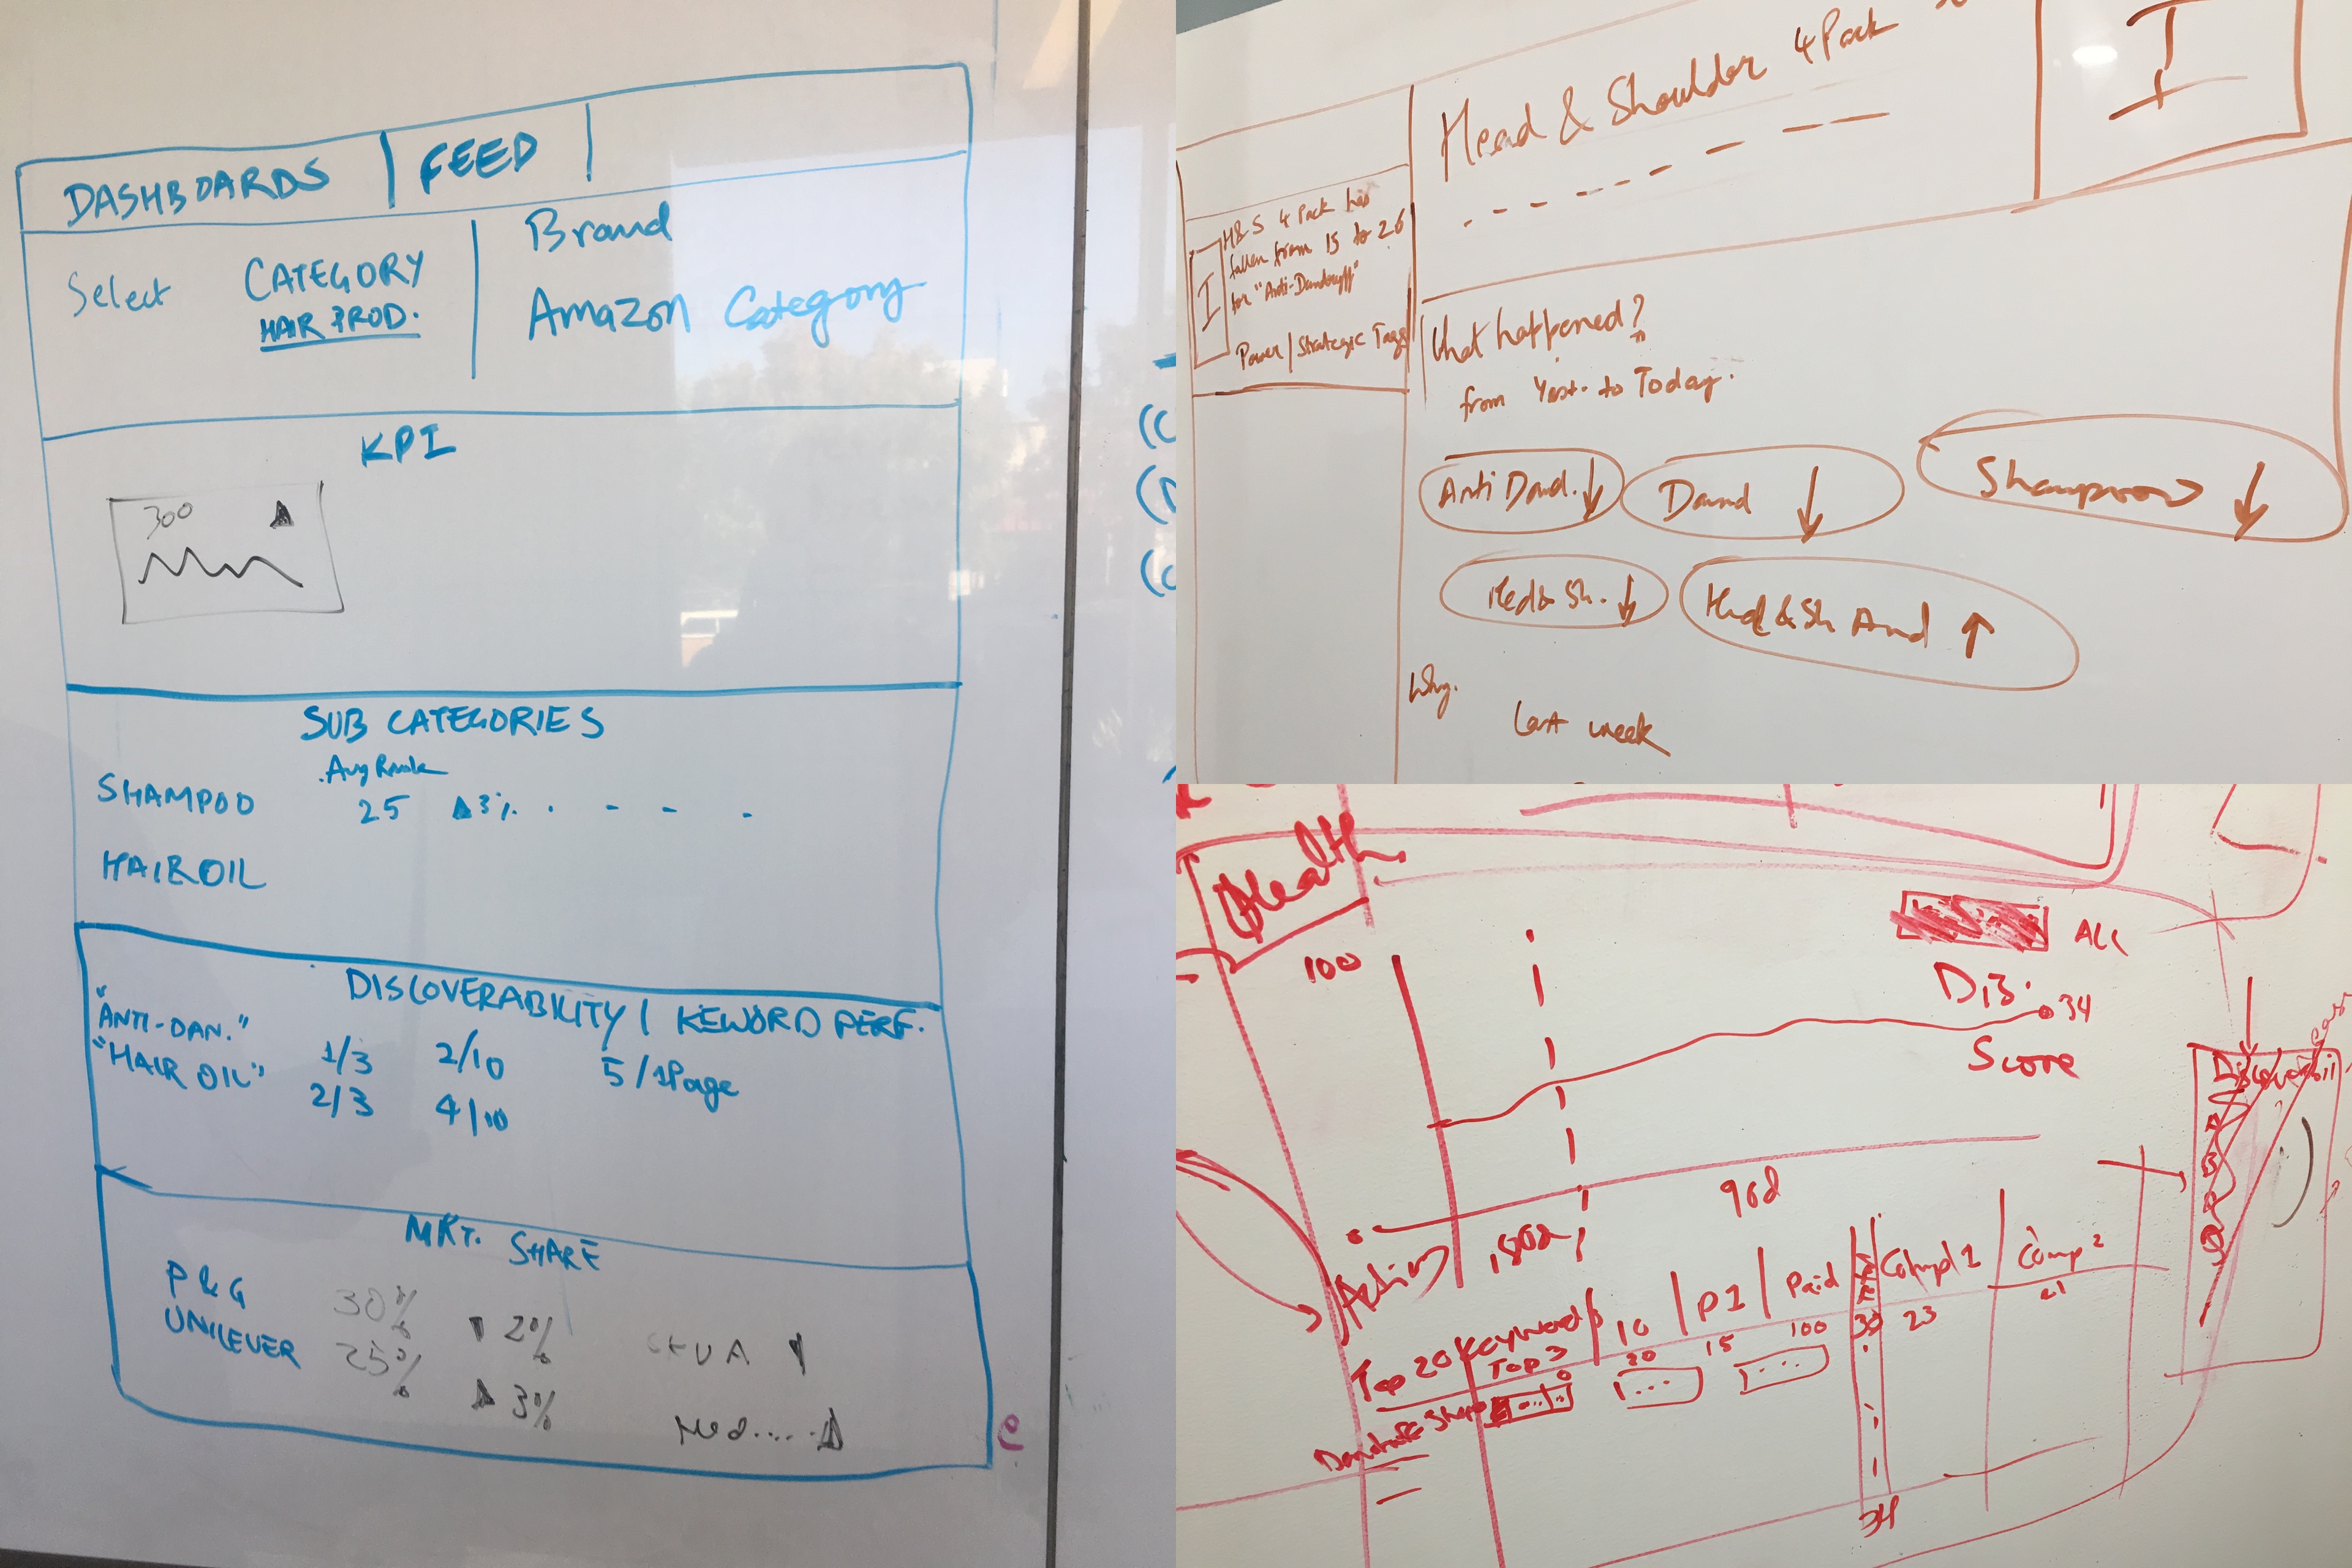 DASHBOARDS | FEED |
Select CATEGORY
HAIR PROD.
Brand
Amazon Category
KPI
300
SUB CATEGORIES
Avg Rank
SHAMPOO 25 ▲3%
HAIR OIL
DISCOVERABILITY | KEWORD PERF.
"ANTI-DAN." 1/3 2/10 5/1Page
"HAIR OIL" 2/3 4/10
MKT. SHARE
P&G 30% ▼ 2%
UNILEVER 25% ▲ 3%
Head & Shoulder 4 Pack
H&S 4 Pack has
fallen from 15 to 26
for "Anti-Dandruff"
Power | Strategic Tags
What happened?
from Yest. to Today.
Anti Dand. ↓
Dand ↓
Shampoo ↓
Hed & Sh. ↓
Head & Sh And ↑
Why.
Last week
Health
ALL
100
Dis.
34
Score
180d
90d
Action
Top 20 Keywords
Top 3 | 10 | P1 | Paid
Compl 1
Comp 2
20 15 100 30 23 21
34